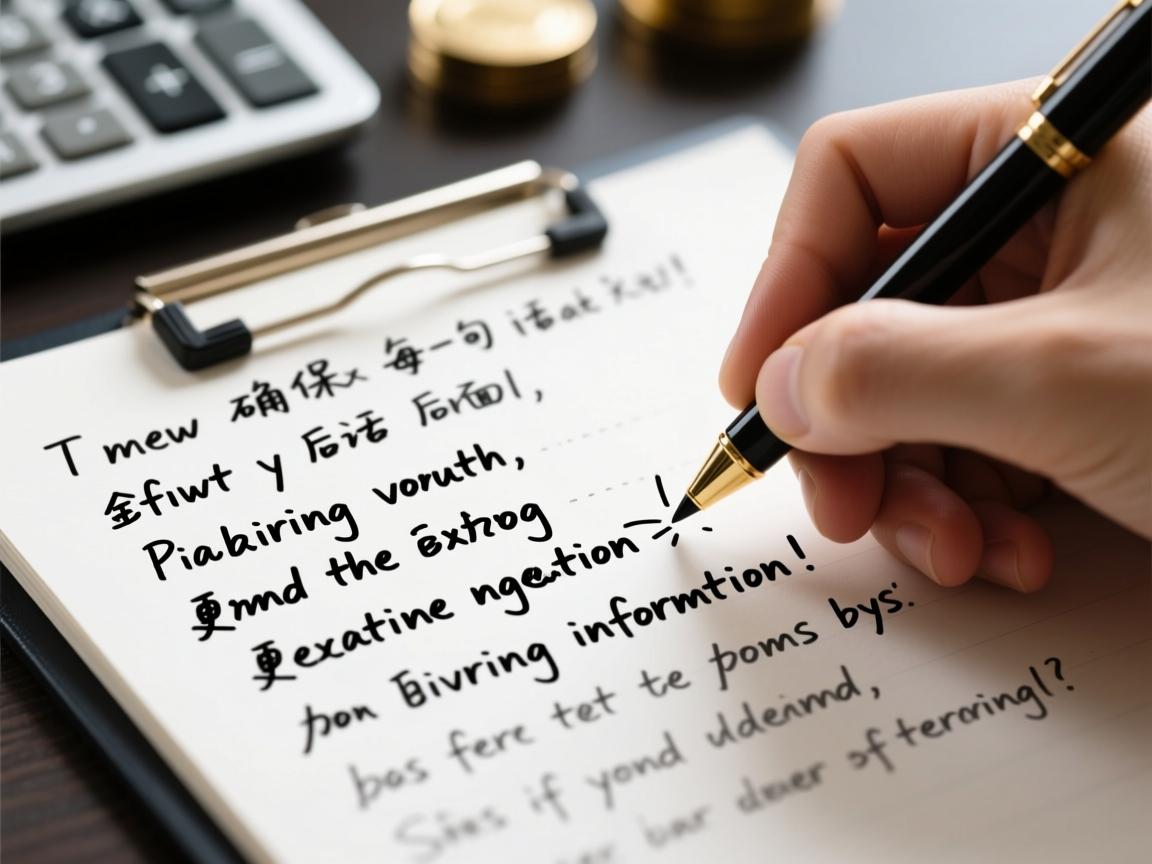 T mew 确保x 每一句
y 后话 后面l,
Piabiring voruth,
更mmd the Extrog
更exatine ngeation !
pon Bivring informtion!
bas fere tet te poms bys.
Sines if yond uldenmd,
bar deuer of teroringl?